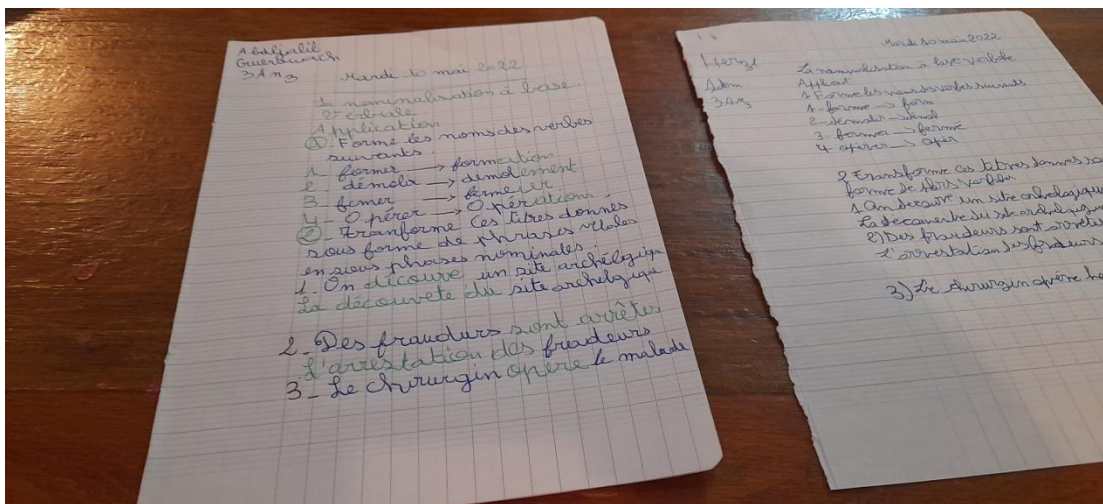 Abdljalil
3 Am 3
Mardi 10 mai 2022
La nominalisation à base
verbale
Application
1 Forme les noms des verbes
suivants
1 - former → formation
2 - démolir → demolement
3 - femer →
4 - Opérer → Opérations
2 - Tranforme Ces titres donnes
sous forme de phrases
en sous phases nominales.
1. On découve un site archélgique
La découvete du site archelgique
2 - Des fraudurs sont arrêter
L'arrestation des fraudeurs
3 - Le chirurgin opère le malade
Mardi 10 mai 2022
3 Am 3
La nominalisation à base verbale
Applicat
1 Forme les noms des verbes suivants
1 - forme → form
2 - démolir → démol
3 - fermer → fermé
4 - opérer → opér
2 Transforme ces titres donnes
forme de
1 On decouvre un site archeologique
La découverte du site
2) Des fraudeurs sont arrêter
L'arrestation des fraudeurs
3) Le chirurgin opére